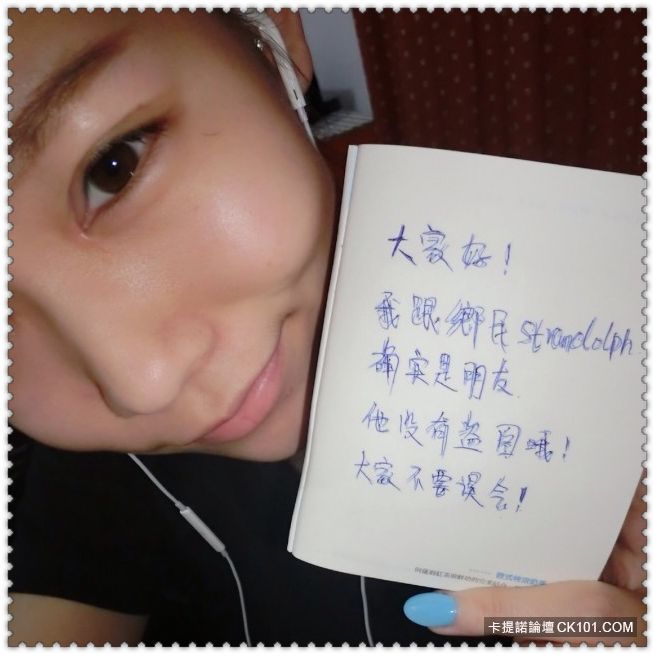 大家好！
我跟鄉民 strandolph
确实是朋友
他没有盗图哦！
大家不要误会！
卡提諾論壇 CK101.COM